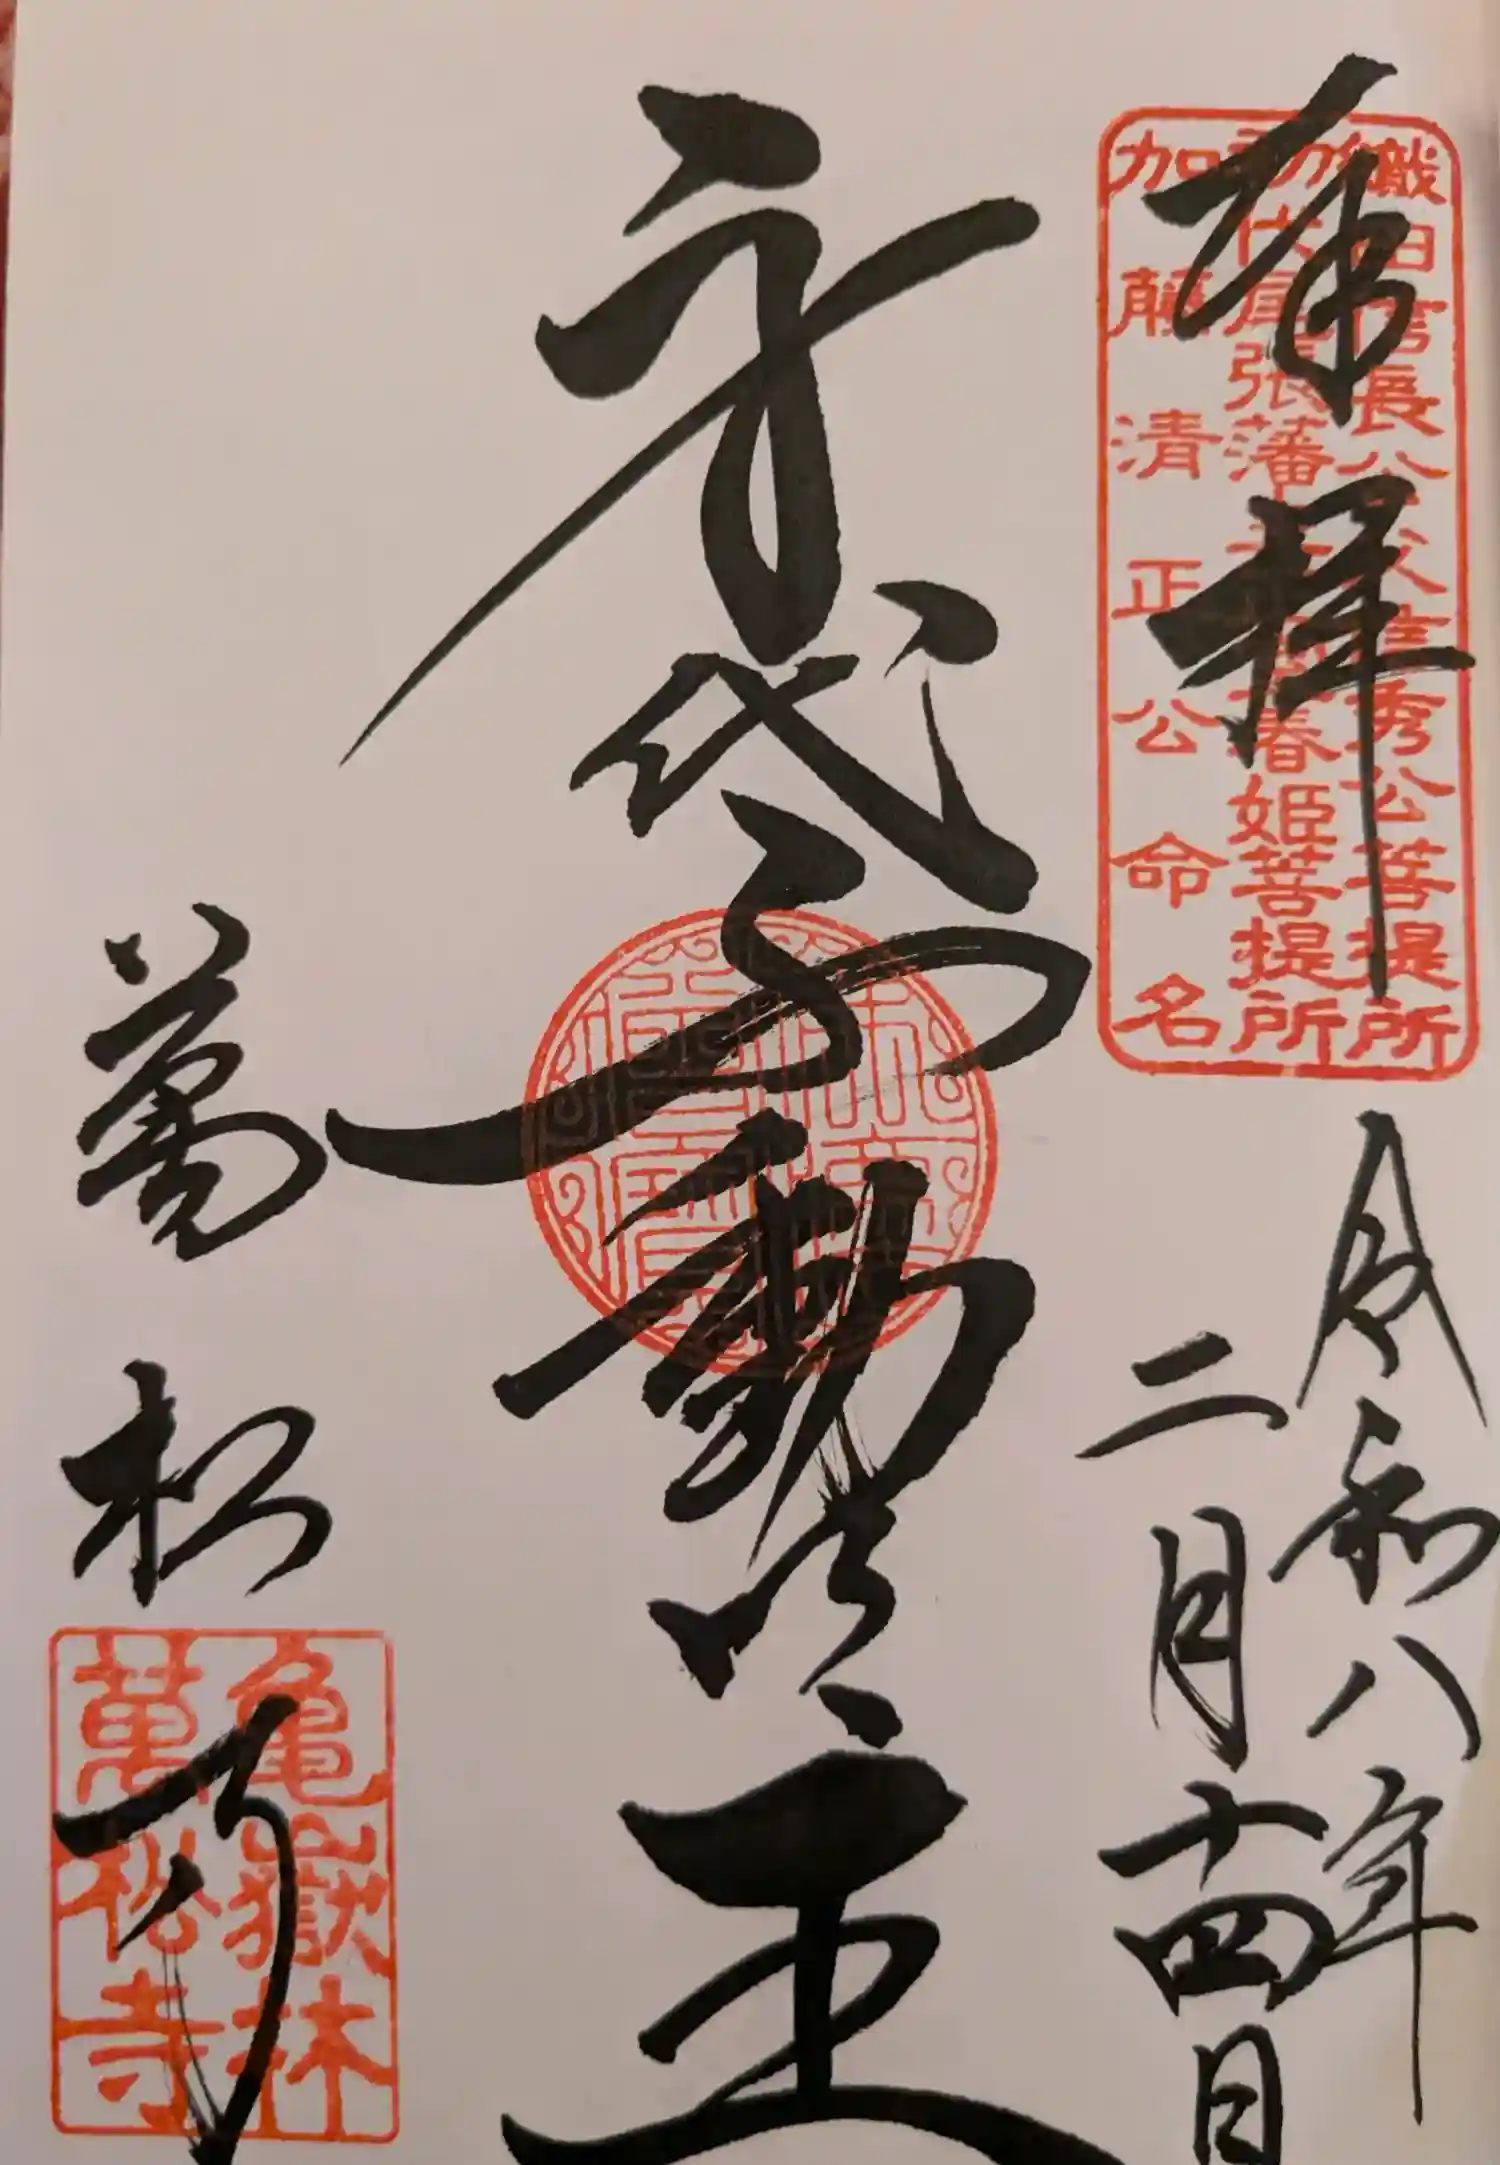 奉拝
織田信長公父信秀公菩提所
初代尾張藩主正室春姫菩提所
加藤清正公命名
令和八年
二月十四日
身代不動明王
萬松寺
亀嶽林
萬松寺